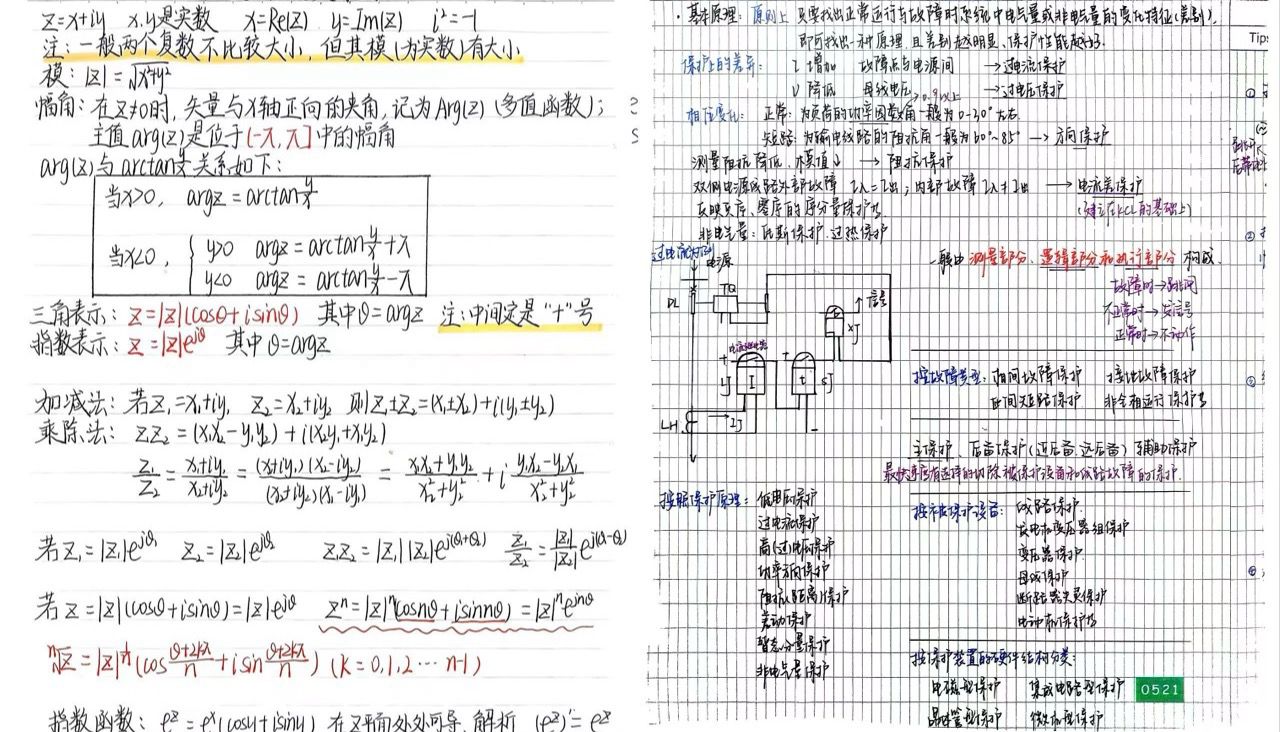 z=x+iy x,y是实数 x=Re(z) y=Im(z) i²=-1
注:一般两个复数不比较大小,但其模(为实数)有大小
模:|z|=√x²+y²
幅角:在z≠0时,矢量与x轴正向的夹角,记为Arg(z)(多值函数);
主值arg(z)是位于(-π,π]中的幅角
arg(z)与arctan y/x关系如下:
当x>0, argz=arctan y/x
当x<0, { y>0 argz=arctan y/x+π
y<0 argz=arctan y/x-π
三角表示:z=|z|(cosθ+isinθ) 其中θ=argz 注:中间定是"+"号
指数表示:z=|z|e^{iθ} 其中θ=argz
加减法:若z₁=x₁+iy₁ z₂=x₂+iy₂ 则z₁±z₂=(x₁±x₂)+i(y₁±y₂)
乘除法:z₁z₂=(x₁x₂-y₁y₂)+i(x₂y₁+x₁y₂)
z₁/z₂=(x₁+iy₁)/(x₂+iy₂)=(x₁+iy₁)(x₂-iy₂)/(x₂+iy₂)(x₂-iy₂)=(x₁x₂+y₁y₂)/(x₂²+y₂²)+i(y₁x₂-y₂x₁)/(x₂²+y₂²)
若z₁=|z₁|e^{iθ₁} z₂=|z₂|e^{iθ₂} z₁z₂=|z₁||z₂|e^{i(θ₁+θ₂)} z₁/z₂=|z₁|/|z₂|e^{i(θ₁-θ₂)}
若z=|z|(cosθ+isinθ)=|z|e^{iθ} zⁿ=|z|ⁿ(cosnθ+isinnθ)=|z|ⁿe^{inθ}
ⁿ√z=|z|^{1/n}(cos (θ+2kπ)/n+isin (θ+2kπ)/n)(k=0,1,2…n-1)
指数函数:e^z=e^x(cosy+isiny) 在z平面处处可导,解析 (e^z)'=e^z
·基本原理:原则上 只要找出正常运行与故障时系统中电气量或非电气量的变化特征(差别),
即可找出一种原理,且差别越明显、保护性能越好.
保护上的差异: I增加 故障点与电源间 →过电流保护
U降低 母线电压 →过电压保护
相位变化: 正常:为负荷的功率因数角一般为0~30°左右
短路:为输电线路的阻抗角一般为60°~85° → 方向保护
测量阻抗降低,模值↓ → 阻抗保护
双侧电源线路外部故障 I入=I出;内部故障 I入≠I出 → 电流差保护
(建立在KCL的基础上)
反映负序、零序的序分量保护等
非电气量:瓦斯保护、过热保护
电源
DL
TQ
信号
XJ
+
LJ
I
+
t
SJ
LH
IJ
-
一般由 测量部分、逻辑部分和执行部分 构成.
故障时→跳闸
不正常时→发信号
正常时→不动作
按故障类型:相间故障保护 接地故障保护
匝间短路保护 非全相运行保护等
主保护、后备保护(近后备、远后备) 辅助保护
按照保护原理:低电压保护
过电流保护
高(过)电压保护
功率方向保护
阻抗(距离)保护
差动保护
暂态分量保护
非电气量保护
按被保护设备:线路保护
发电机变压器组保护
变压器保护
母线保护
断路器失灵保护
电动机保护等
按保护装置的硬件结构分类:
电磁型保护 集成电路型保护
晶体管型保护 微机型保护
0521
Tips
①
②
③
④